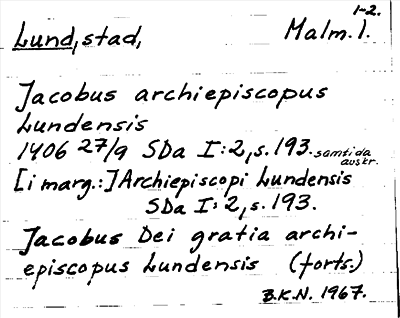 1-2.
Lund, stad, Malm. l.
Jacobus archiepiscopus
Lundensis
1406 27/9 SDa I:2, s. 193. samtida
avskr.
[i marg.:] Archiepiscopi Lundensis
SDa I:2, s. 193.
Jacobus Dei gratia archi-
episcopus Lundensis (forts.)
B.K.N. 1967.